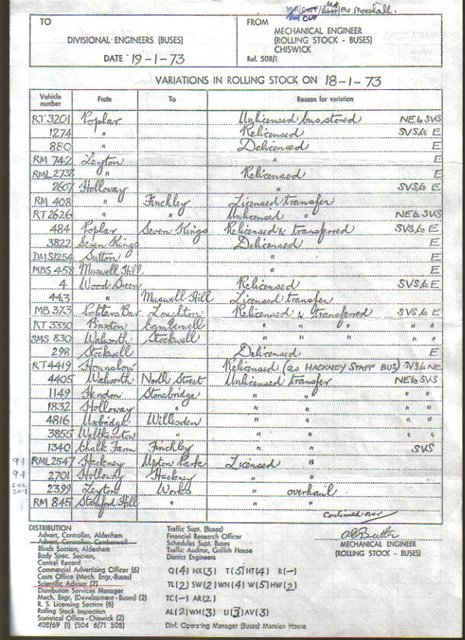 Mr. Marshall.
TO
DIVISIONAL ENGINEERS (BUSES)
DATE 19-1-73
FROM
MECHANICAL ENGINEER
(ROLLING STOCK - BUSES)
CHISWICK
Ref. 508/1
VARIATIONS IN ROLLING STOCK ON 18-1-73
Vehicle number From To Reason for variation
RT3201 Poplar Unlicensed bus stored NE to SVS
1274 " Relicensed SVS to E
880 " Delicensed E
RM 742 Leyton " E
RML 2738 " Relicensed
2607 Holloway " SVS to E
RM 408 " Finchley Licensed transfer
RT2626 " " Unlicensed " NE to SVS
484 Poplar Seven Kings Relicensed & transferred SVS to E
3822 Seven Kings Delicensed E
DMS1254 Sutton " E
MBS 458 Muswell Hill " E
4 Wood Green Relicensed SVS to E
443 " Muswell Hill Licensed transfer
MB 373 Potters Bar Loughton Relicensed & transferred SVS to E
RT 3330 Brixton Camberwell " " " "
SMS 830 Walworth Stockwell " " " "
298 Stockwell Delicensed E
RT4419 Hounslow Relicensed (as HACKNEY STAFF BUS) SVS to NE
4405 Walworth North Street Unlicensed Transfer NE to SVS
1149 Hendon Stonebridge " " " "
1832 Holloway " " " " "
4816 Uxbridge Willesden " " " "
3855 Walthamstow " " " " "
1340 Chalk Farm Finchley " " SVS
RML2547 Hackney Upton Park Licensed "
2701 Holloway Hackney " "
2399 Leyton Works " overhaul
RM 845 Stamford Hill " " "
continued over
MECHANICAL ENGINEER
(ROLLING STOCK - BUSES)
DISTRIBUTION
Advert. Controller, Aldenham
Advert. Controller, Camberwell
Blinds Section, Aldenham
Body Spec. Section,
Central Record
Commercial Advertising Officer (6)
Costs Office (Mech. Engr.-Buses)
Scientific Adviser (2)
Distribution Services Manager
Mech. Engr. (Development - Buses) (2)
R. S. Licensing Section (6)
Rolling Stock Inspection
Statistical Office - Chiswick (2)
408/69 (1) (504 6/71 508)
Traffic Supt. (Buses)
Financial Research Officer
Schedules Supt. Buses
Traffic Auditor, Griffith House
District Engineers
Q(4) NX(3) T(5) HT(4) R(-)
TL(2) SW(2) WN(4) W(5) HW(2)
TC(-) AR(2)
AL(2) WH(3) U(3) AV(3)
Divl. Operating Manager (Buses) Mansion House